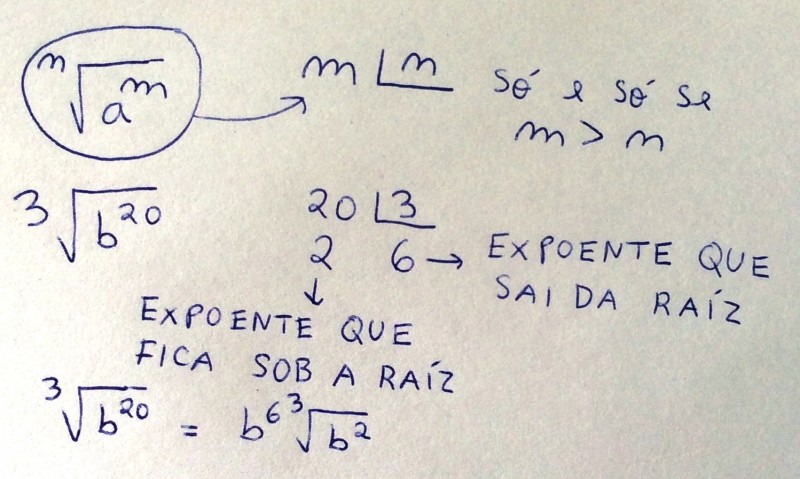 ⁿ√aᵐ → m |n só e só se
m > n
³√b²⁰ 20 |3
2 6 → EXPOENTE QUE
SAI DA RAÍZ
↓
EXPOENTE QUE
FICA SOB A RAÍZ
³√b²⁰ = b⁶ ³√b²